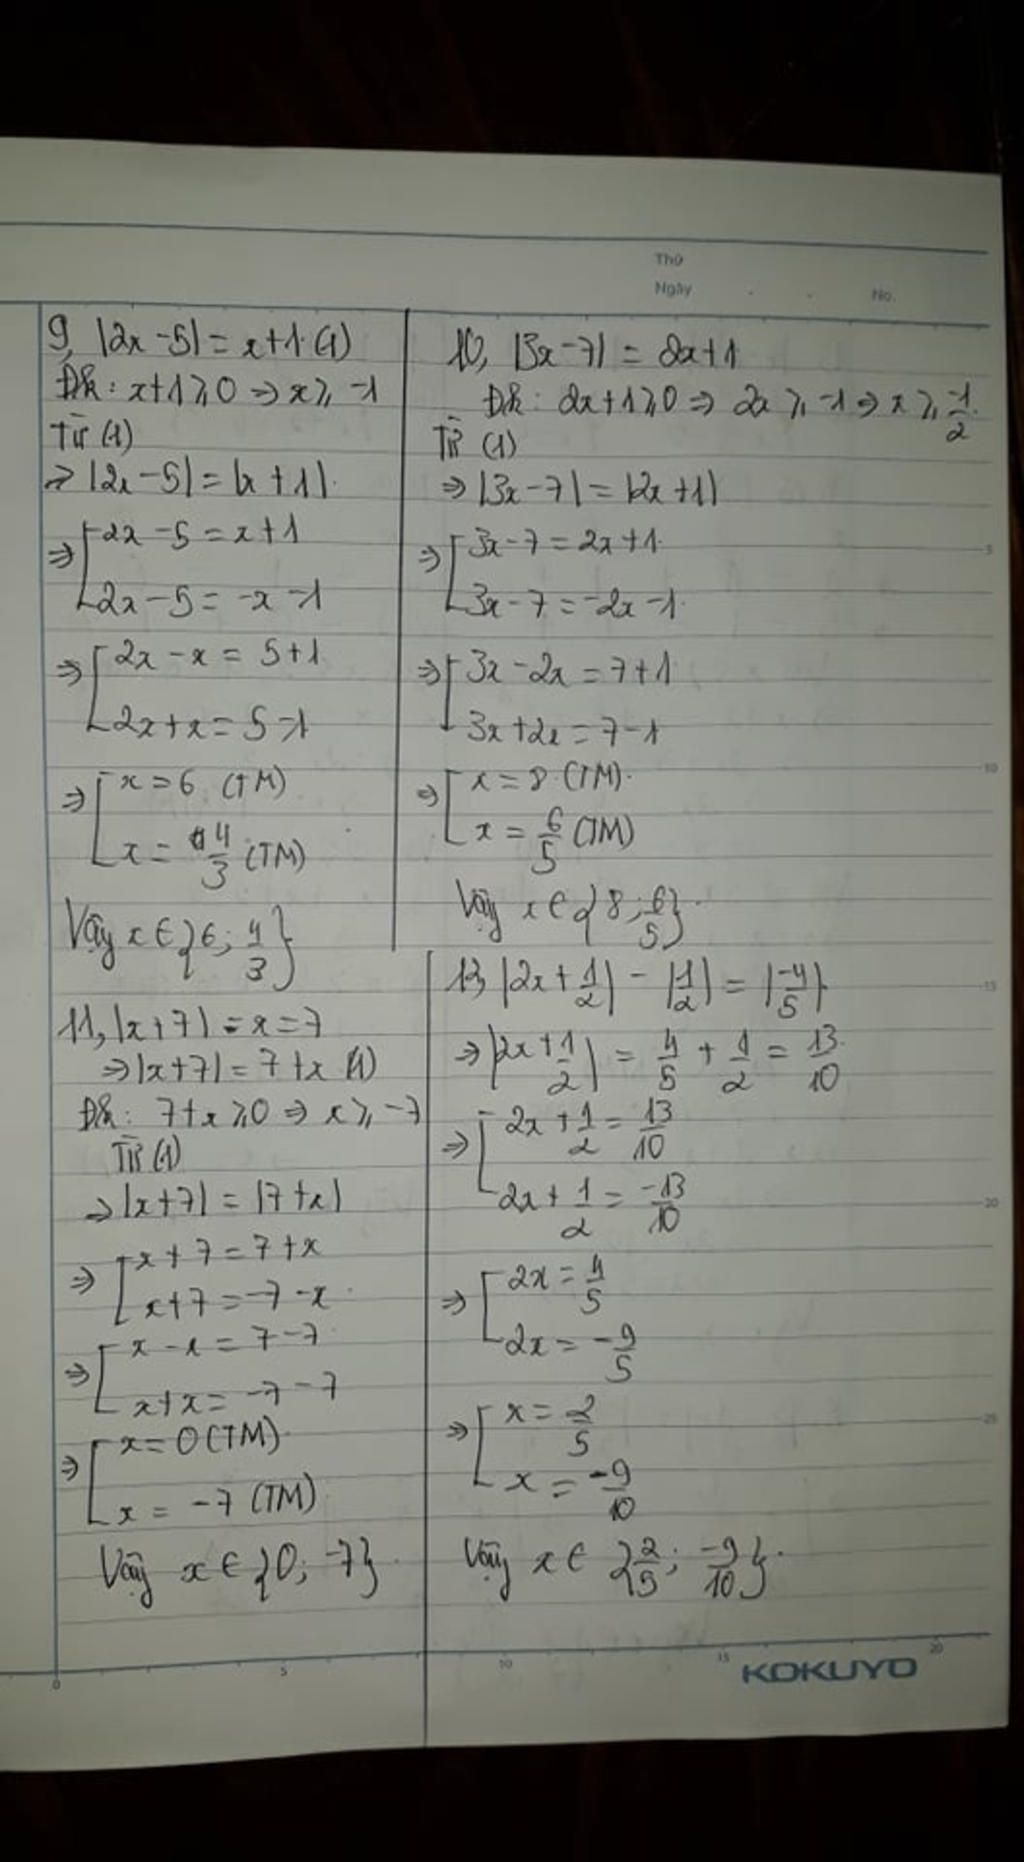 Thứ
Ngày . . No.
9, |2x-5| = x+1. (1)
Đk: x+1⩾0 ⇒ x⩾-1
Từ (1)
⇒ |2x-5| = |x+1|.
⇒ [2x-5 = x+1
2x-5 = -x-1
⇒ [2x-x = 5+1
2x+x = 5-1
⇒ [x = 6 (TM)
x = 4/3 (TM)
Vậy x∈{6; 4/3}
10, |3x-7| = 2x+1
Đk: 2x+1⩾0 ⇒ 2x⩾-1 ⇒ x⩾-1/2
Từ (1)
⇒ |3x-7| = |2x+1|
⇒ [3x-7 = 2x+1.
3x-7 = -2x-1.
⇒ [3x-2x = 7+1
3x+2x = 7-1
⇒ [x = 8 (TM).
x = 6/5 (TM)
Vậy x∈{8; 6/5}.
11, |x+7| - x = 7
⇒ |x+7| = 7+x (1)
Đk: 7+x⩾0 ⇒ x⩾-7
Từ (1)
⇒ |x+7| = |7+x|
⇒ [x+7 = 7+x
x+7 = -7-x.
⇒ [x-x = 7-7
x+x = -7-7
⇒ [x = 0 (TM)
x = -7 (TM)
Vậy x∈{0; -7}.
|2x+1/2| - |1/2| = |-4/5|.
⇒ |2x+1/2| = 4/5 + 1/2 = 13/10
⇒ [2x+1/2 = 13/10
2x+1/2 = -13/10
⇒ [2x = 4/5
2x = -9/5
⇒ [x = 2/5
x = -9/10
Vậy x∈{2/5; -9/10}.
5
10
15
20
25
0 5 10 15 20
KOKUYO